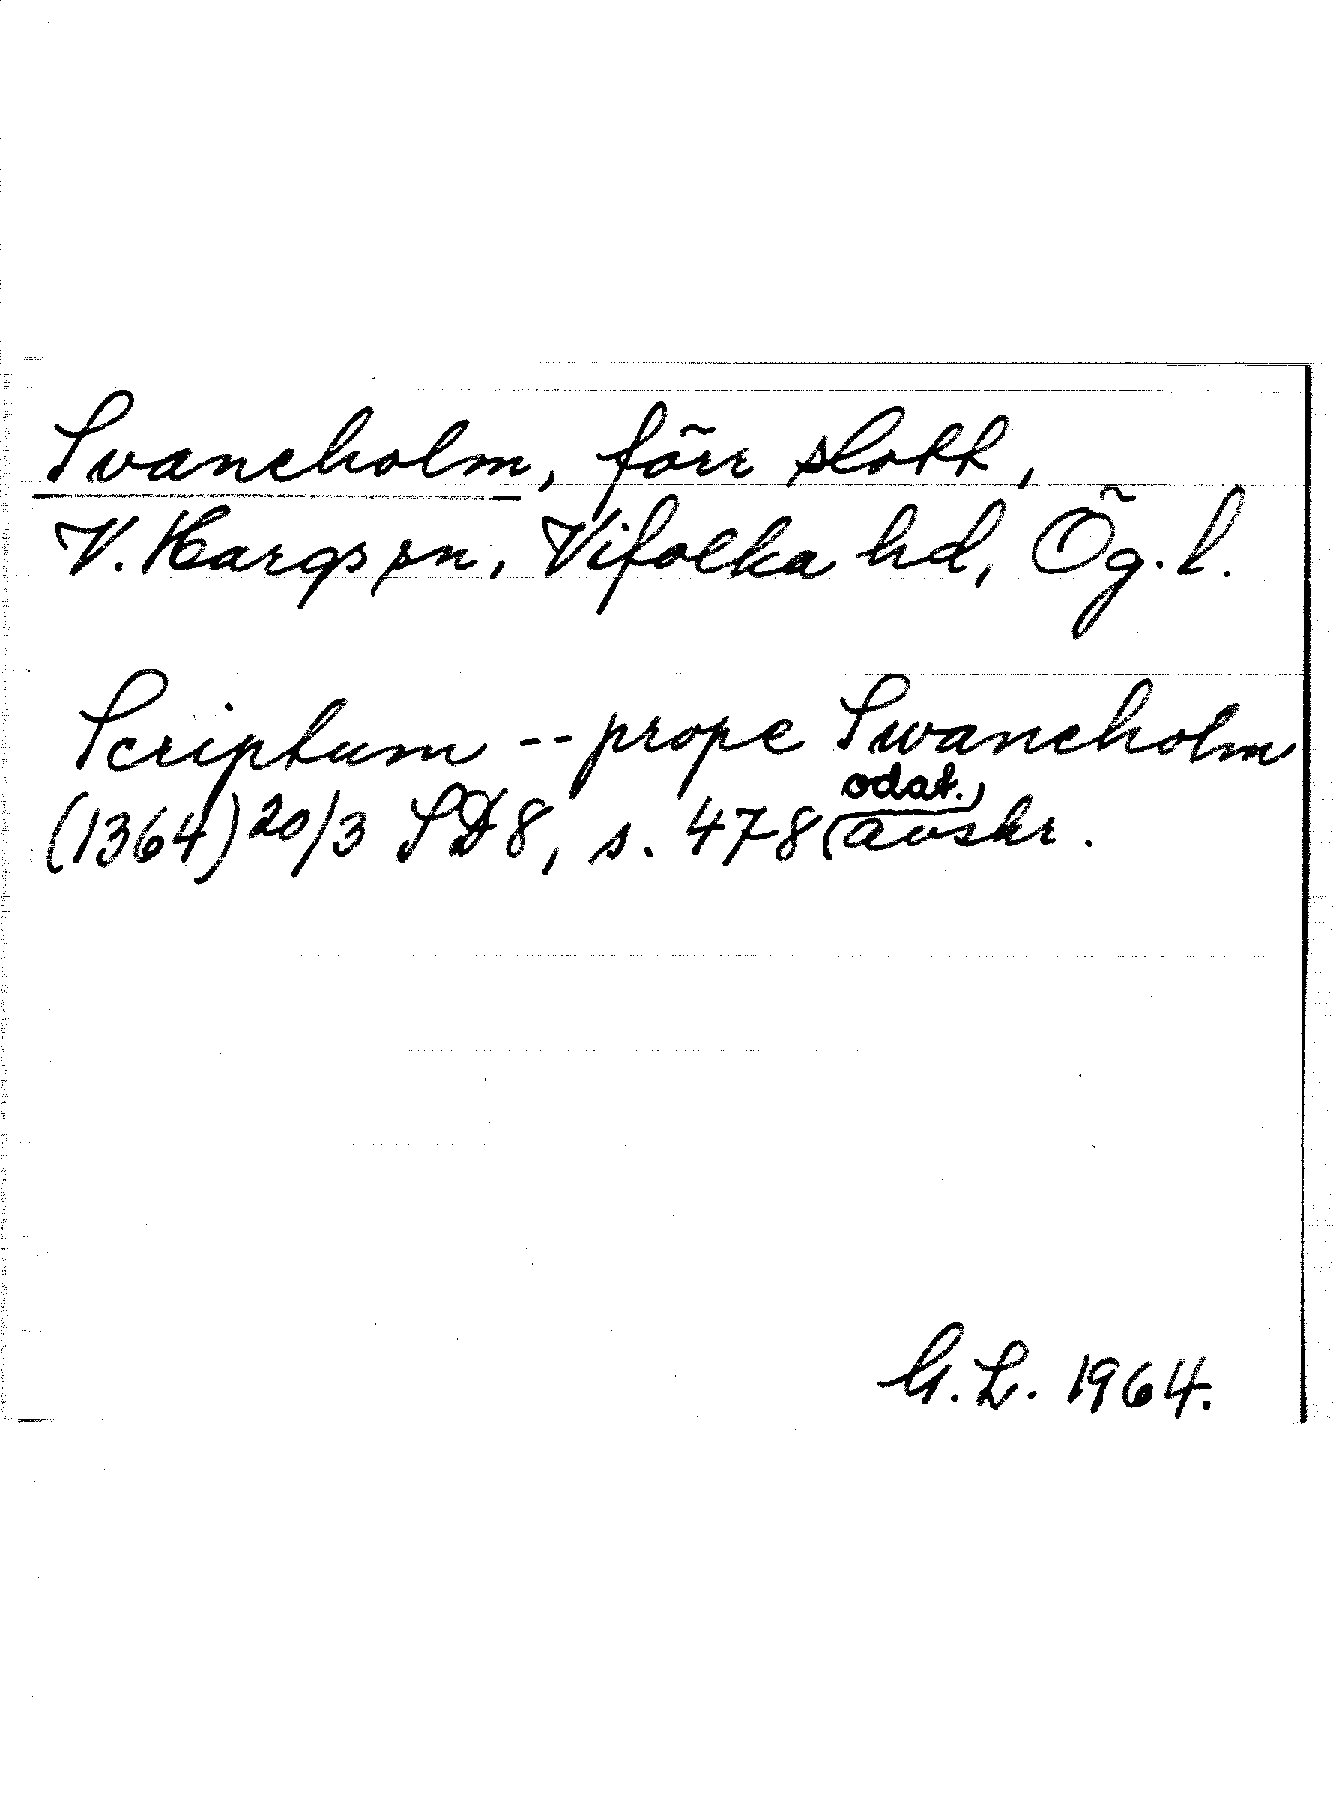 Svaneholm, förr slott,
V. Hargs sn, Vifolka hd, Ög. l.
Scriptum -- prope Swaneholm
(1364) 20/3 SD 8, s. 478 (odat.) avskr.
G. L. 1964.